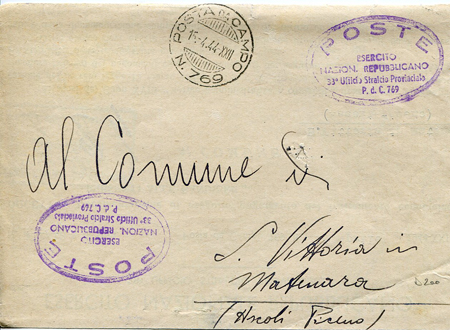 POSTA DA CAMPO
15.4.44.XXII
N. 769
POSTE
ESERCITO
NAZION. REPUBBLICANO
33° Ufficio Stralcio Provinciale
P. d. C. 769
Al Comune di
POSTE
ESERCITO
NAZION. REPUBBLICANO
33° Ufficio Stralcio Provinciale
P. d. C. 769
S. Vittoria in
Matenara
(Ascoli Piceno)